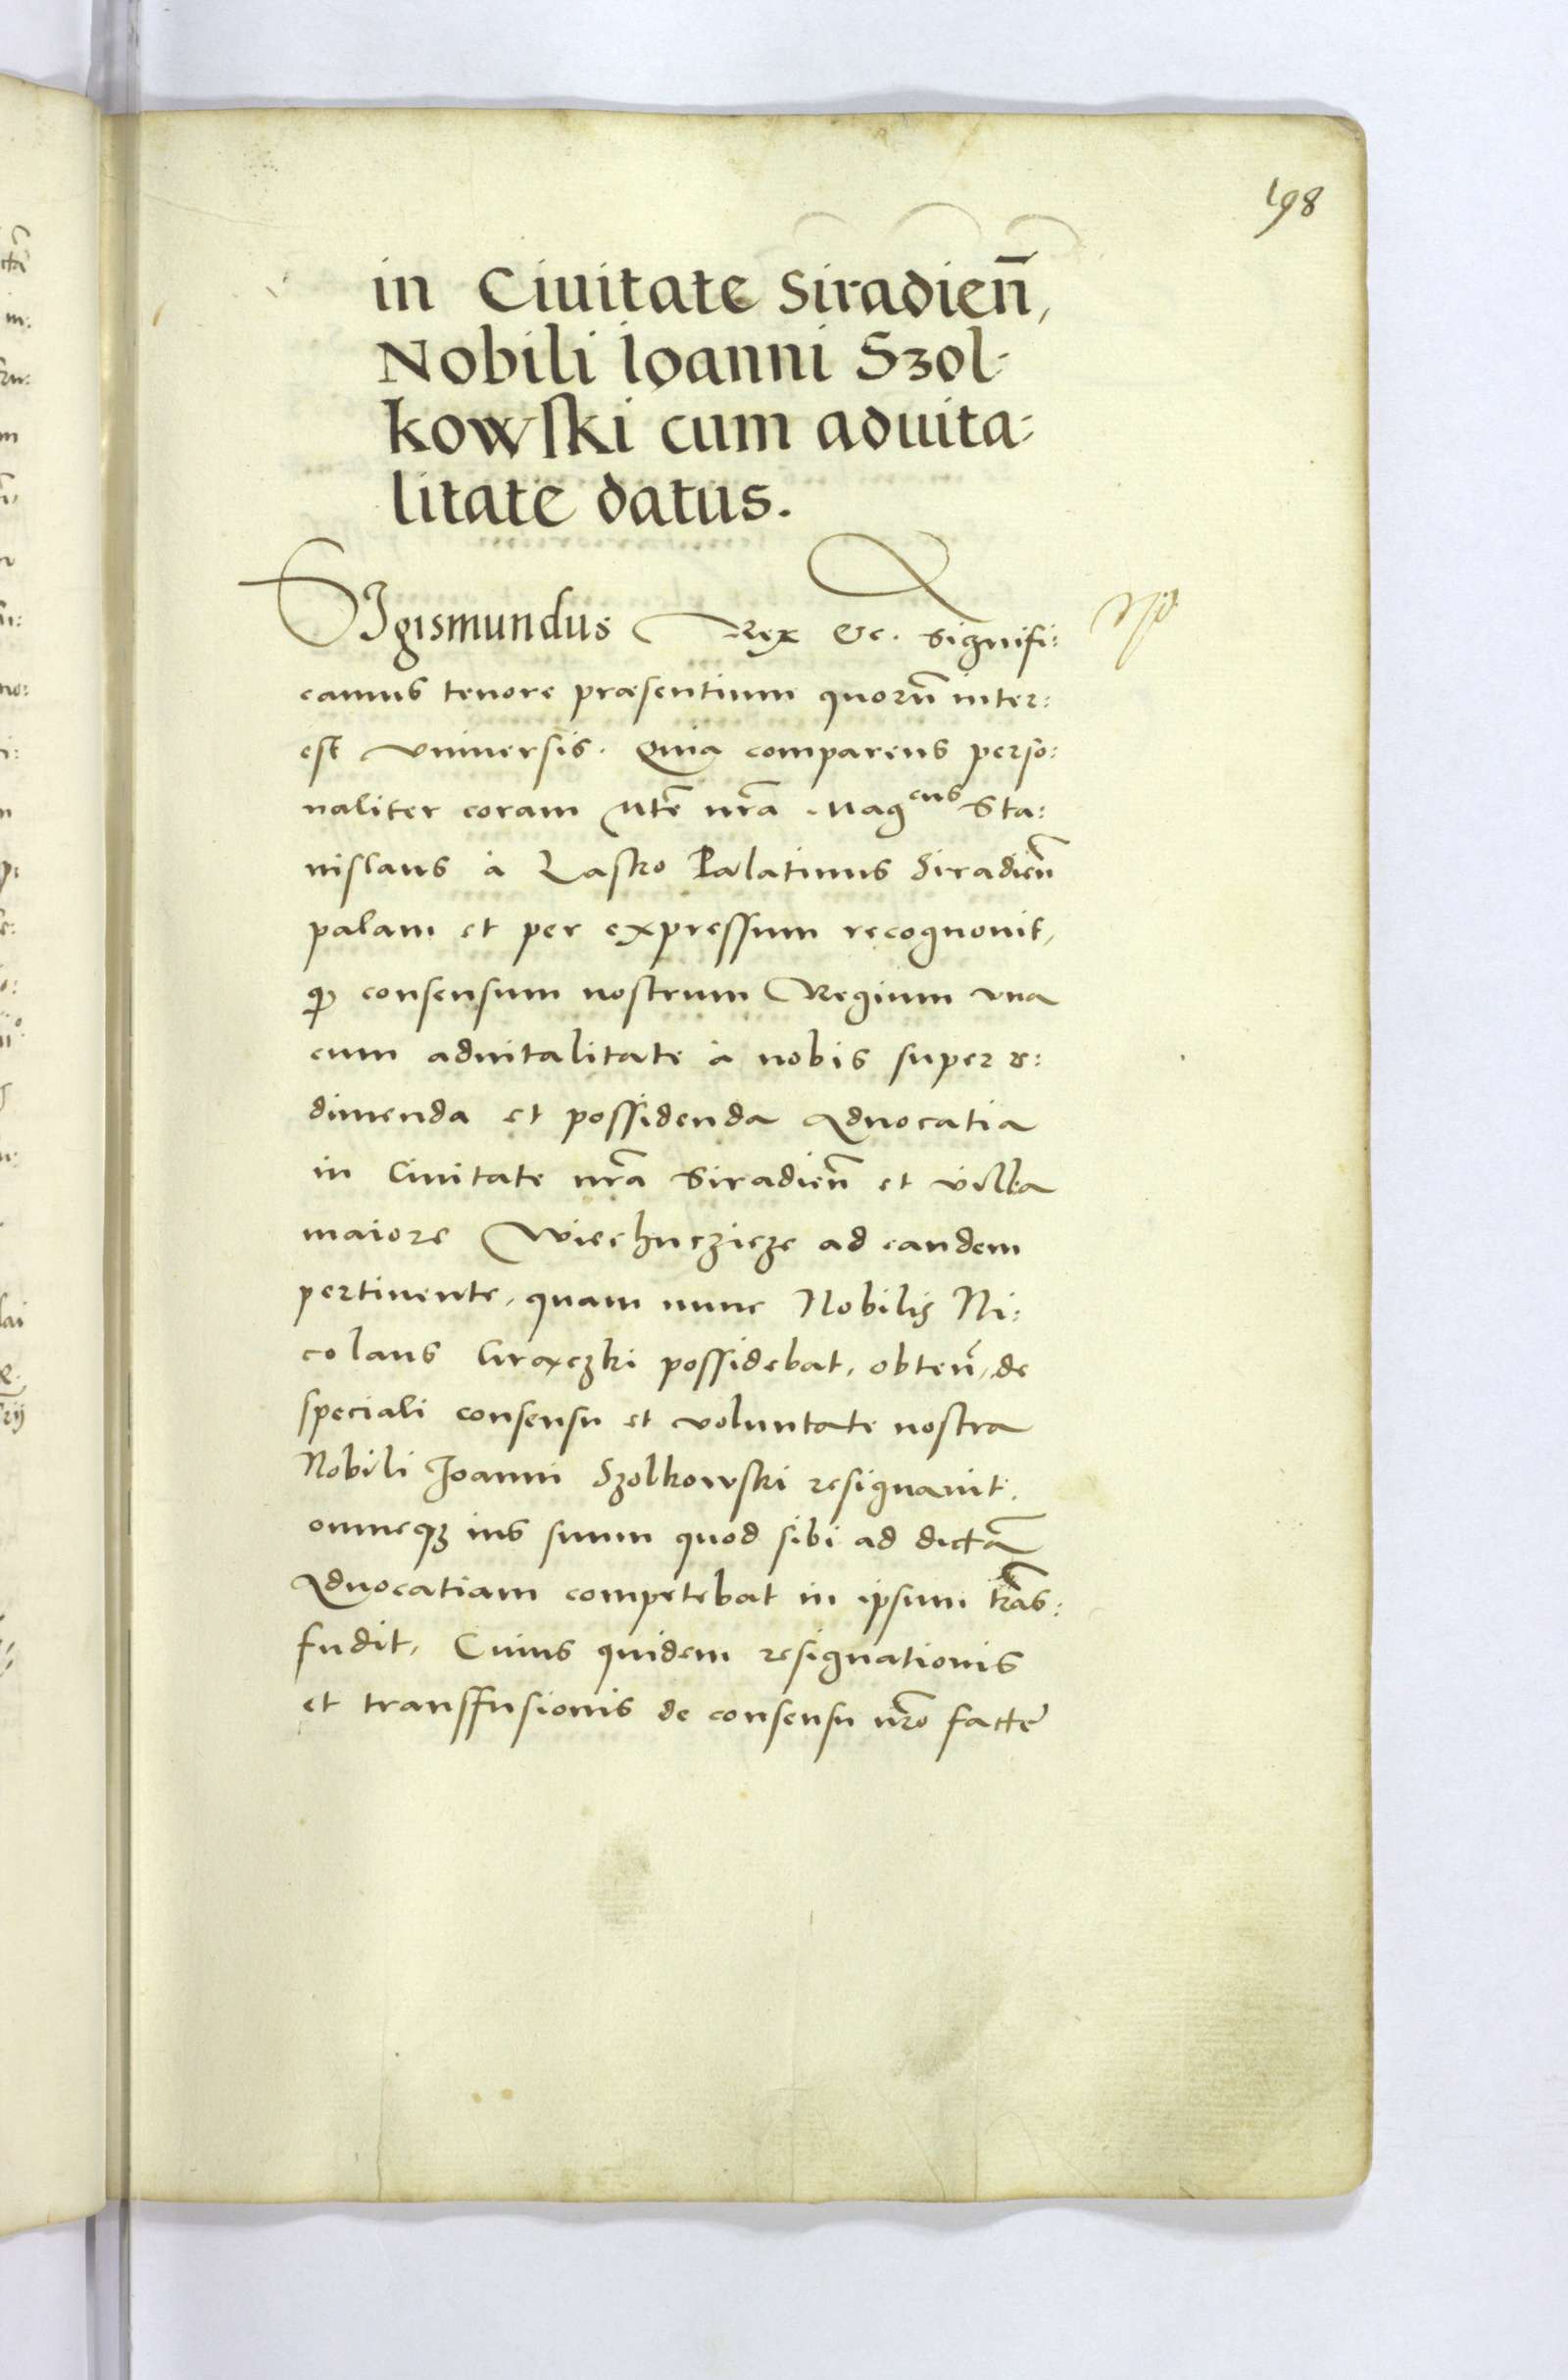 198
in Ciuitate Siradien̄,
Nobili Ioanni Szol-
kowski cum aduita-
litate datus.
SIgismundus Rex &c. Signifi:
camus tenore præsentium quorū inter:
est vniuersis. Quia comparens perso:
naliter coram Mte nr̄a Mag^cus Sta:
nislaus à Lasko Palatinus Siradien̄
palam et per expressum recognouit,
qꝫ consensum nostrum Regium vna
cum aduitalitate à nobis super re:
dimenda et possidenda Aduocatia
in Ciuitate nr̄a Siradien̄ et villa
maiore Wiechuczicze ad eandem
pertinente, quam nunc Nobilis Ni:
colaus possidebat, obten̄, de
speciali consensu et voluntate nostra
Nobili Ioanni Szolkowski resignauit,
omneqꝫ ius suum quod sibi ad dictā
Aduocatiam competebat in ipsum trās:
fudit, Cuius quidem resignationis
et transfusionis de consensu nr̄o factę